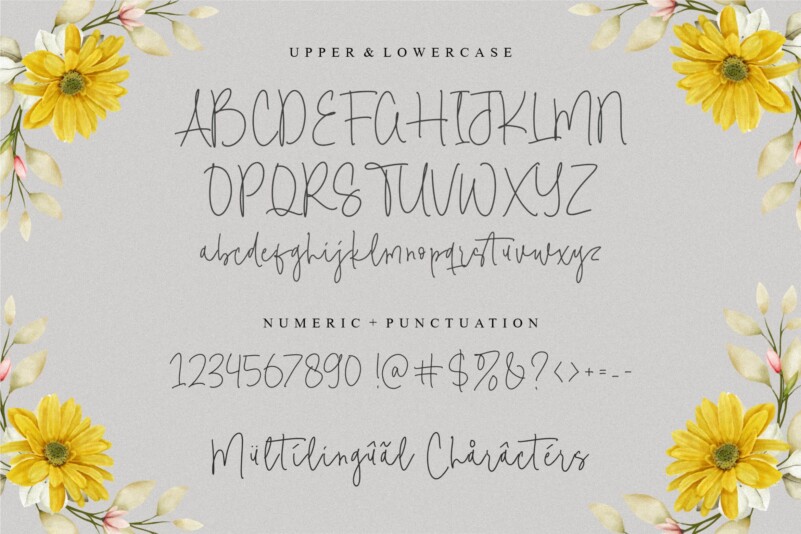 UPPER & LOWERCASE
ABCDEFGHIJKLMN
OPQRSTUVWXYZ
abcdefghijklmnopqrstuvwxyz
NUMERIC + PUNCTUATION
1234567890 !@#$%&?<>+=_-
Mültílingûãl Chåråctérs